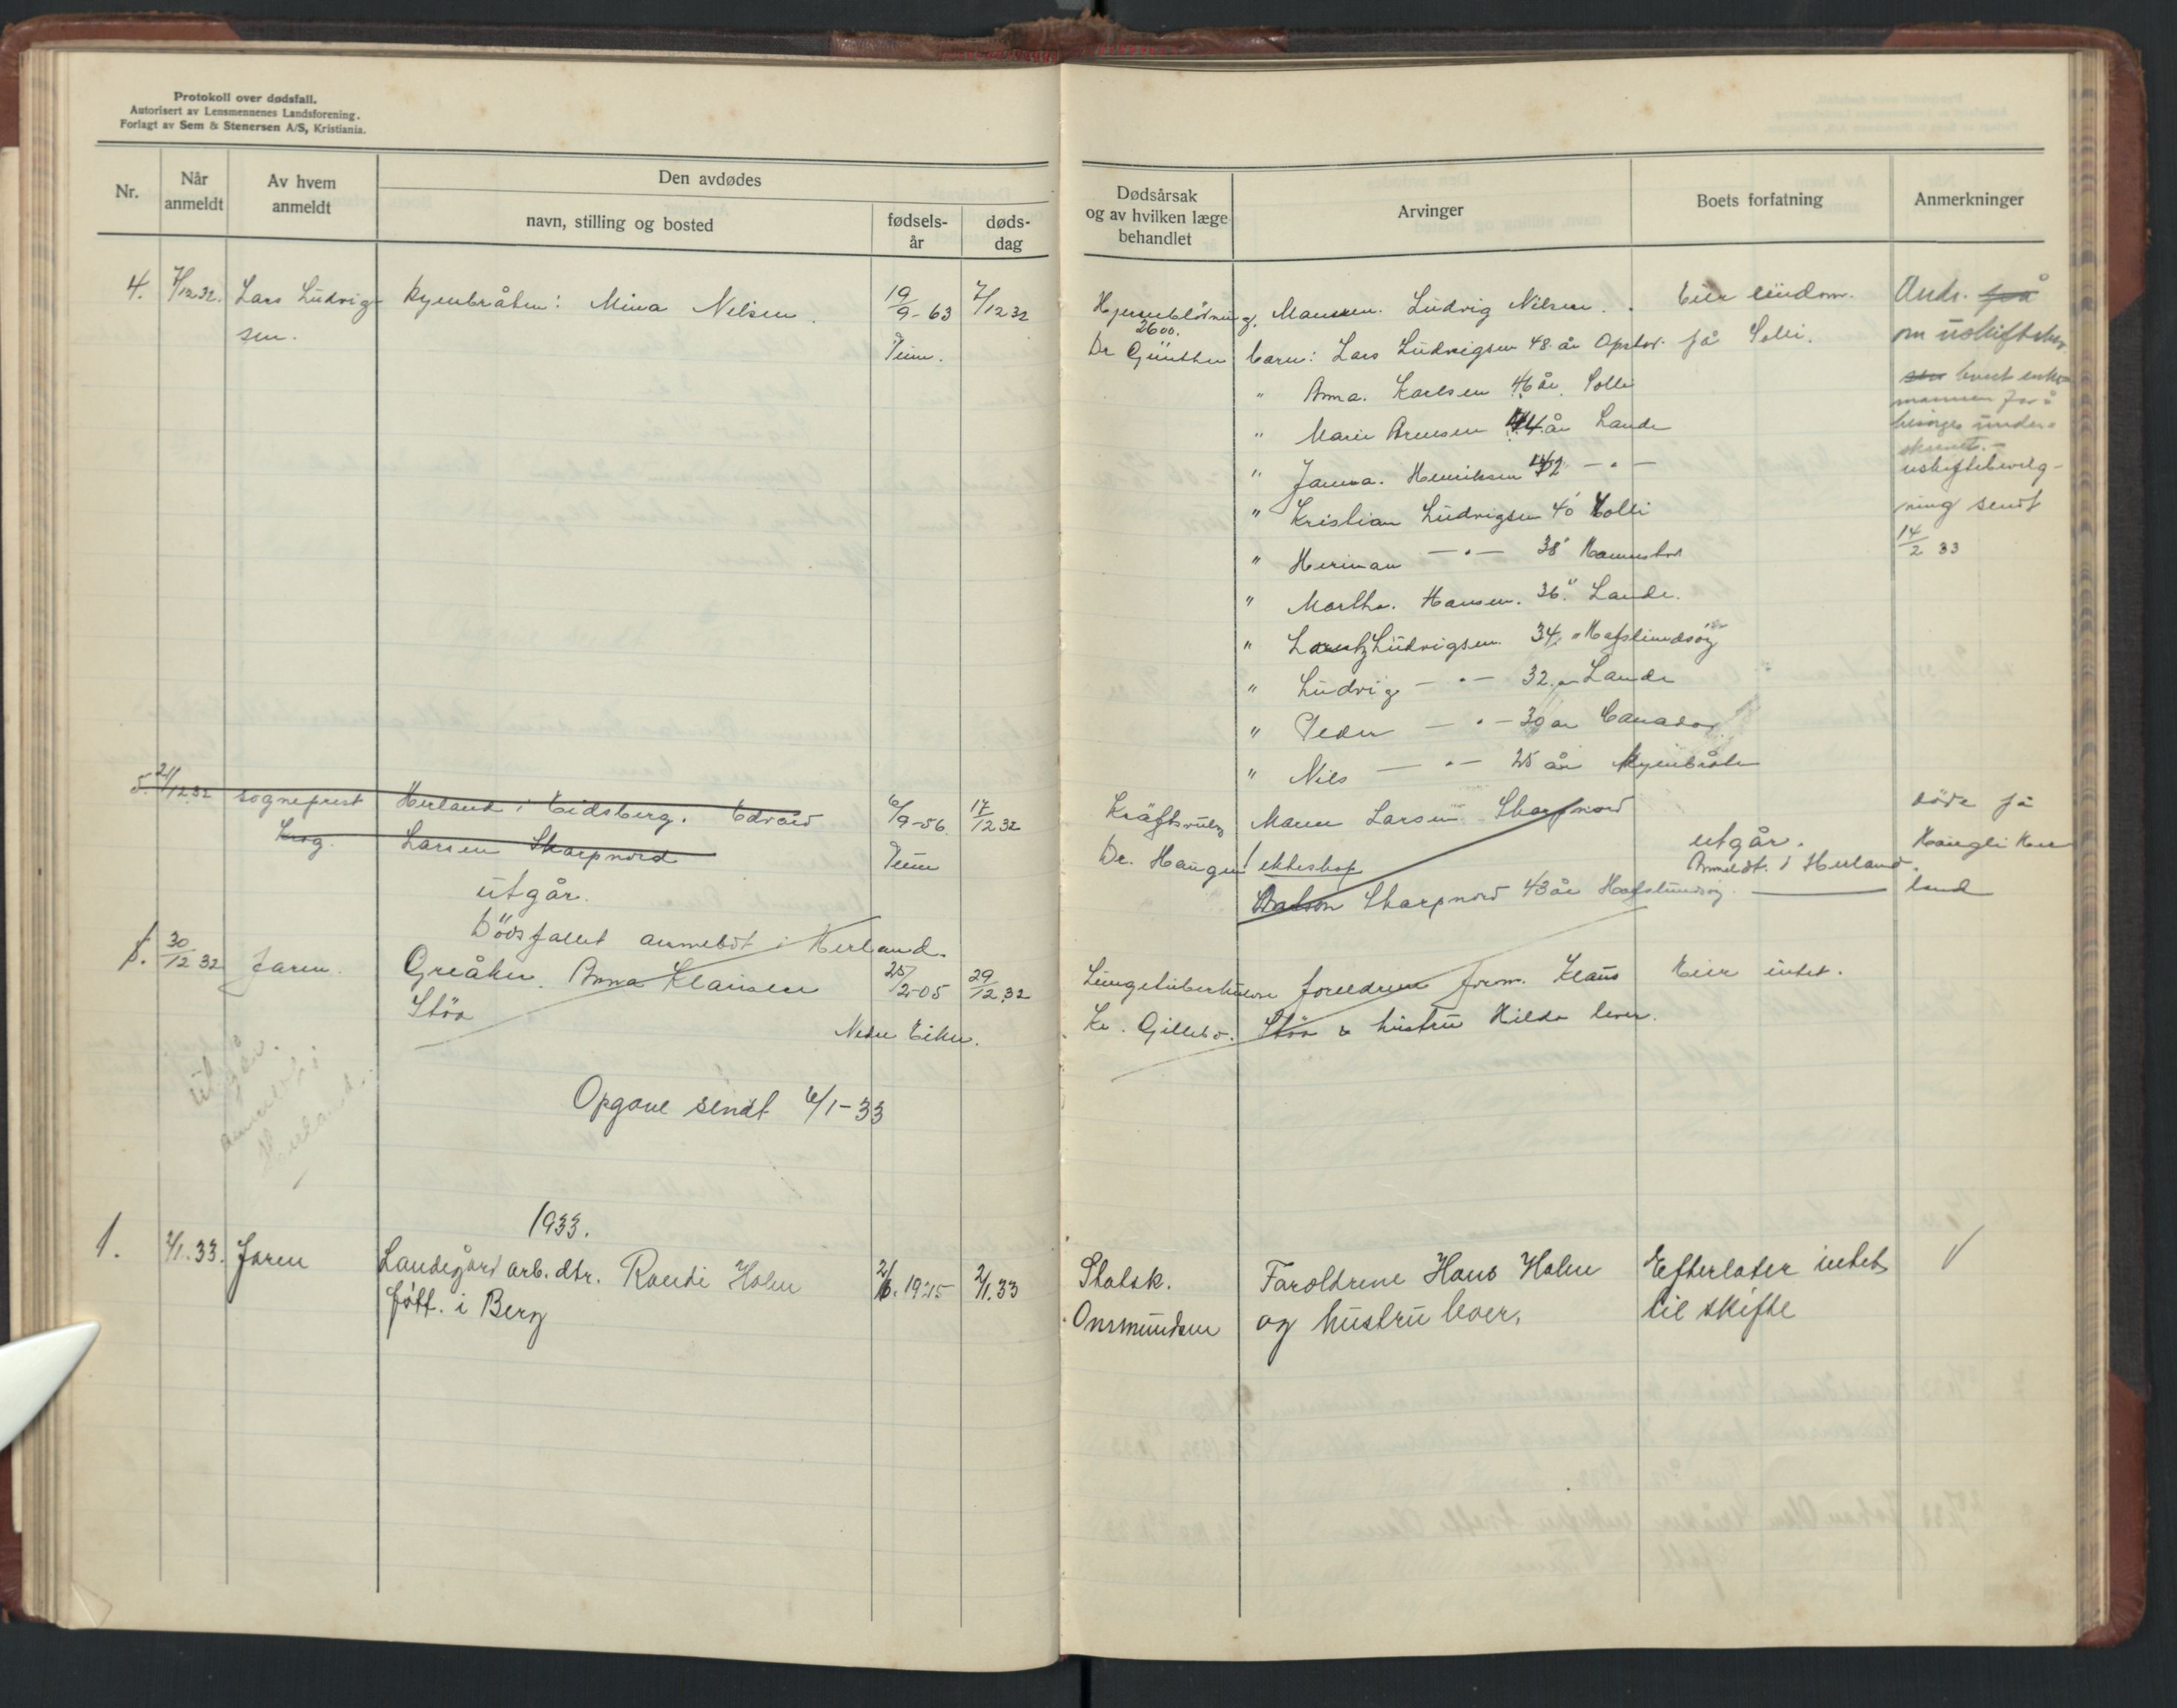 Protokoll over dødsfall.
Autorisert av Lensmennenes Landsforening.
Forlagt av Sem & Stenersen A/S, Kristiania.
Nr.
Når anmeldt
Av hvem anmeldt
Den avdødes
navn, stilling og bosted
fødsels-
år
døds-
dag
Dødsårsak
og av hvilken læge
behandlet
Arvinger
Boets forfatning
Anmerkninger
4. 7/12 32. Lars Ludvig- Nilsen. 19/9-63 7/12 32
sen. Tune.
Hjerneblødning. Mannen. Ludvig Nilsen. Eier eiendom.
2600.
Dr Günther barn: Lars Ludvigsen 48 år på Solli.
" Anna. Karlsen 46 år. Solli
" Marie Arnesen 44 år Lande
" Henriksen 42 — " —
" Kristian Ludvigsen 40 " Solli
" Herman — " — 38 "
" Martha. Hansen. 36 " Lande.
" Lorentz Ludvigsen. 34 " Hafslundsøy
" Ludvig — " — 32 år Lande
" Peder — " — 30 år Canada
" Nils — " — 25 år
Ands.
om uskiftebev.
uskiftebevilg-
ning sendt
14/2 33
5. 21/12 32 sogneprest Herland i Eidsberg. Edvard 6/9-56. 17/12 32
Krog. Larsen Skarpnord Tune
utgår.
Dødsfallet anmeldt i Herland.
Maren Larsen Skarpnord
Dr. Haugen ! ekteskap utgår.
Anmeldt i Herland.
Skarpnord 43 år Hafslundsøy
døde på
land
30/12 32 Jaren. Greåker. Anna Klausen 25/2-05 29/12 32
Støa Nedre Eiker.
Lungetuberkulose foreldrene form. Klaus Eier intet.
Gillebo. Støa & hustru Hilda lever.
utgår.
anmeldt i
Herland.
Opgave sendt 6/1-33
1933.
1. 2/1.33. Jaren Landegård arb. dtr. Randi Holm 1915 2/1.33
født. i Berg
Foreldrene Hans Holm Efterlater intet
og hustru lever, til skifte